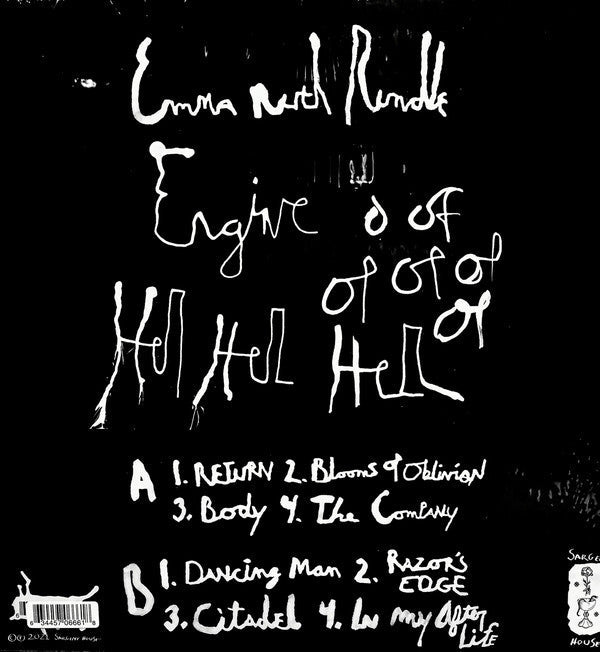 Emma Ruth Rundle
Engine o of
of of of
Hell Hell Hell of
A 1. RETURN 2. Blooms of Oblivion
3. Body 4. The Company
B 1. Dancing Man 2. RAZOR'S EDGE
3. Citadel 4. In my After Life
6 34457 06661 8
©℗ 2021 SARGENT HOUSE
SARGE
HOUSE